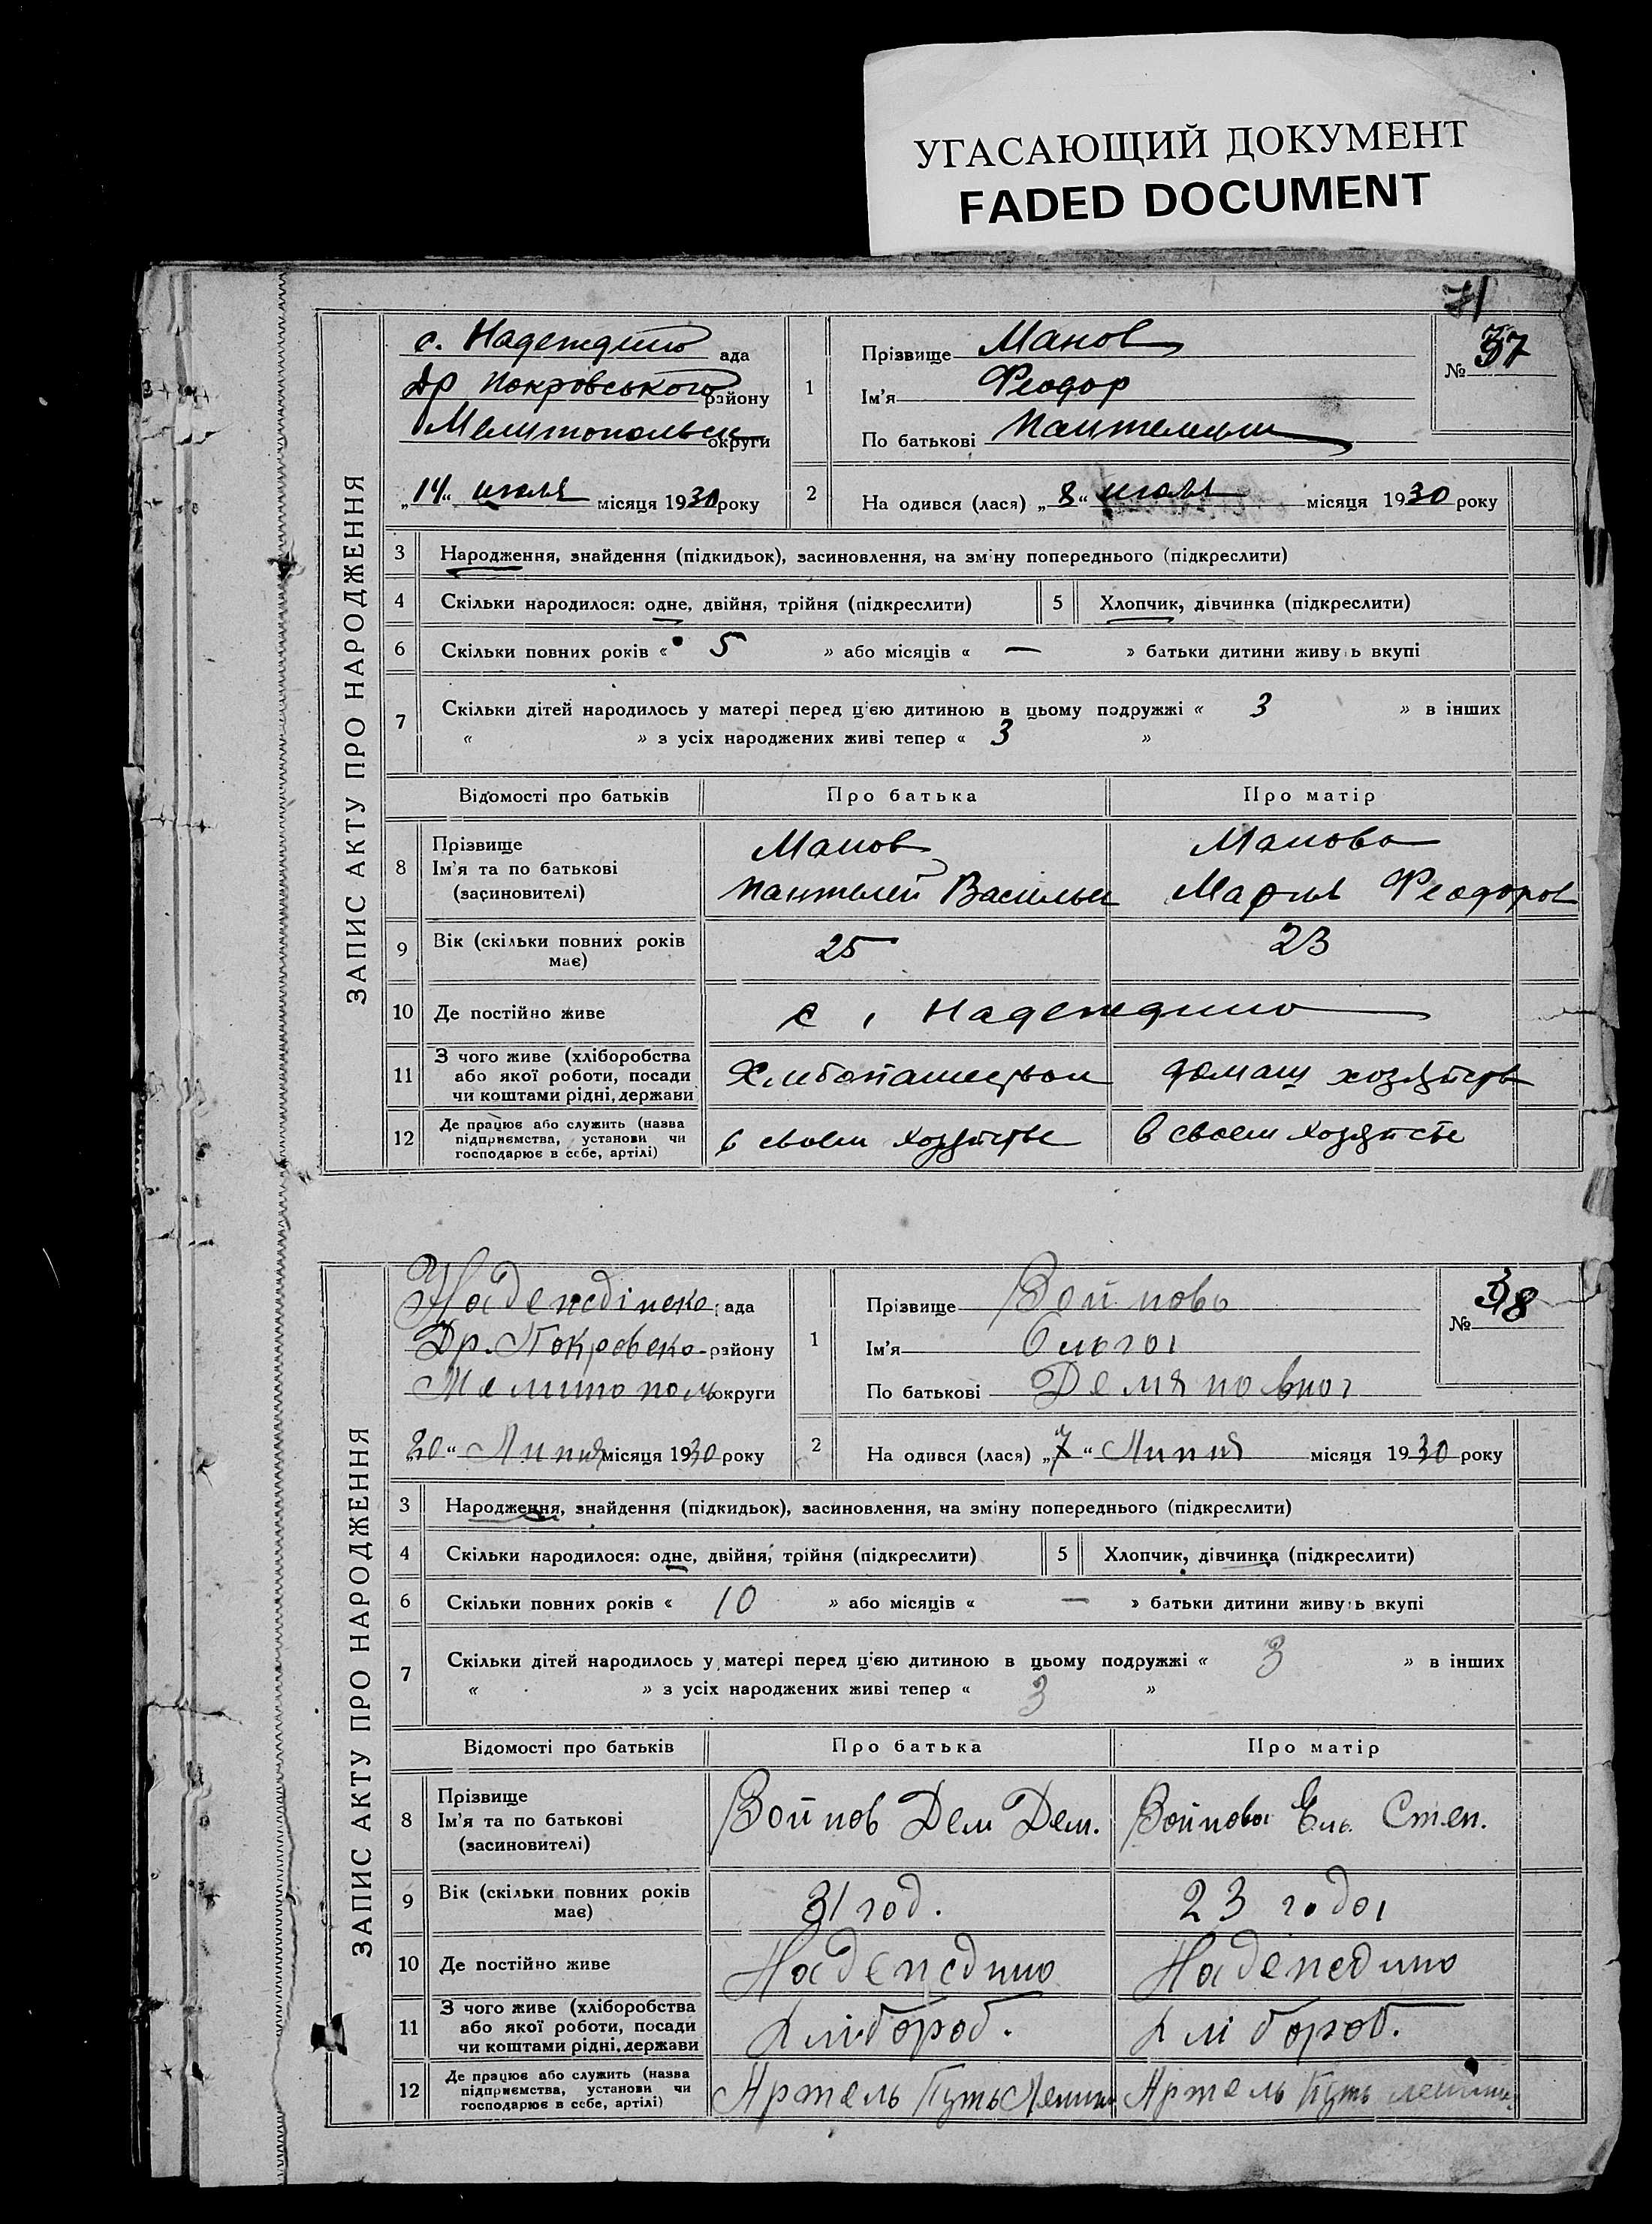 УГАСАЮЩИЙ ДОКУМЕНТ
FADED DOCUMENT
71
ЗАПИС АКТУ ПРО НАРОДЖЕННЯ
с. Надеждино ада
Др Покровського району
Мелитопольск округи
„14“ июля місяця 1930 року
1
Прізвище Манов
Ім'я Феодор
По батькові Пантелеим
№ 37
2 На одився (лася) „8“ июля місяця 1930 року
3 Народження, знайдення (підкидьок), засиновлення, на зміну попереднього (підкреслити)
4 Скільки народилося: одне, двійня, трійня (підкреслити) 5 Хлопчик, дівчинка (підкреслити)
6 Скільки повних років « 5 » або місяців « — » батьки дитини живуть вкупі
7 Скільки дітей народилось у матері перед цією дитиною в цьому подружжі « 3 » в інших
« » з усіх народжених живі тепер « 3 »
Відомості про батьків Про батька Про матір
8 Прізвище
Ім'я та по батькові
(засиновителі)
Манов
Пантелей Васильи
Манова
Мария Феодоров
9 Вік (скільки повних років має) 25 23
10 Де постійно живе с. Надеждино
11 З чого живе (хліборобства
або якої роботи, посади
чи коштами рідні, держави
Хлебопашеством домаш хозяйств
12 Де працює або служить (назва
підприємства, установи чи
господарює в себе, артілі)
в своем хозяйстве в своем хозяйстве
ЗАПИС АКТУ ПРО НАРОДЖЕННЯ
Надеждінско ада
Др. Покровско району
Мелитополь округи
„20“ Липня місяця 1930 року
1
Прізвище Войнова
Ім'я Ольга
По батькові Демяновна
№ 38
2 На одився (лася) „7“ Липня місяця 1930 року
3 Народження, знайдення (підкидьок), засиновлення, на зміну попереднього (підкреслити)
4 Скільки народилося: одне, двійня, трійня (підкреслити) 5 Хлопчик, дівчинка (підкреслити)
6 Скільки повних років « 10 » або місяців « — » батьки дитини живуть вкупі
7 Скільки дітей народилось у матері перед цією дитиною в цьому подружжі « 3 » в інших
« » з усіх народжених живі тепер « 3 »
Відомості про батьків Про батька Про матір
8 Прізвище
Ім'я та по батькові
(засиновителі)
Войнов Дем Дем. Войнова Ель. Степ.
9 Вік (скільки повних років має) 31 год. 23 года
10 Де постійно живе Надеждино Надеждино
11 З чого живе (хліборобства
або якої роботи, посади
чи коштами рідні, держави
Хлібороб. Хлібороб.
12 Де працює або служить (назва
підприємства, установи чи
господарює в себе, артілі)
Артель Путь Ленин Артель Путь Ленин